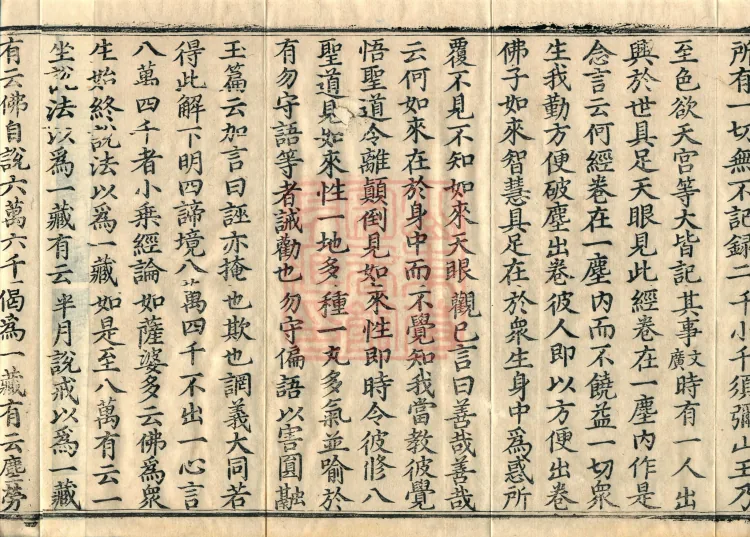 所有一切無不記錄二千小千須彌山王乃
至色欲天宮等大皆記其事廣文時有一人出
興於世具足天眼見此經卷在一塵內作是
念言云何經卷在一塵內而不饒益一切衆
生我勤方便破塵出卷彼人即以方便出卷
佛子如來智慧具足在於衆生身中爲惑所
覆不見不知如來天眼觀已言曰善哉善哉
云何如來在於身中而不覺知我當教彼覺
悟聖道令離顛倒見如來性即時令彼修八
聖道見如來性一地多種一丸多氣並喻於
有勿守語等者誡勸也勿守偏語以害圓融
玉篇云加言曰誣亦掩也欺也誷義大同若
得此解下明四諦境八萬四千不出一心言
八萬四千者小乗經論如薩婆多云佛爲衆
生始終說法以爲一藏如是至八萬有云一
坐說法以爲一藏有云半月說戒以爲一藏
有云佛自說六萬六千偈爲一藏有云塵勞